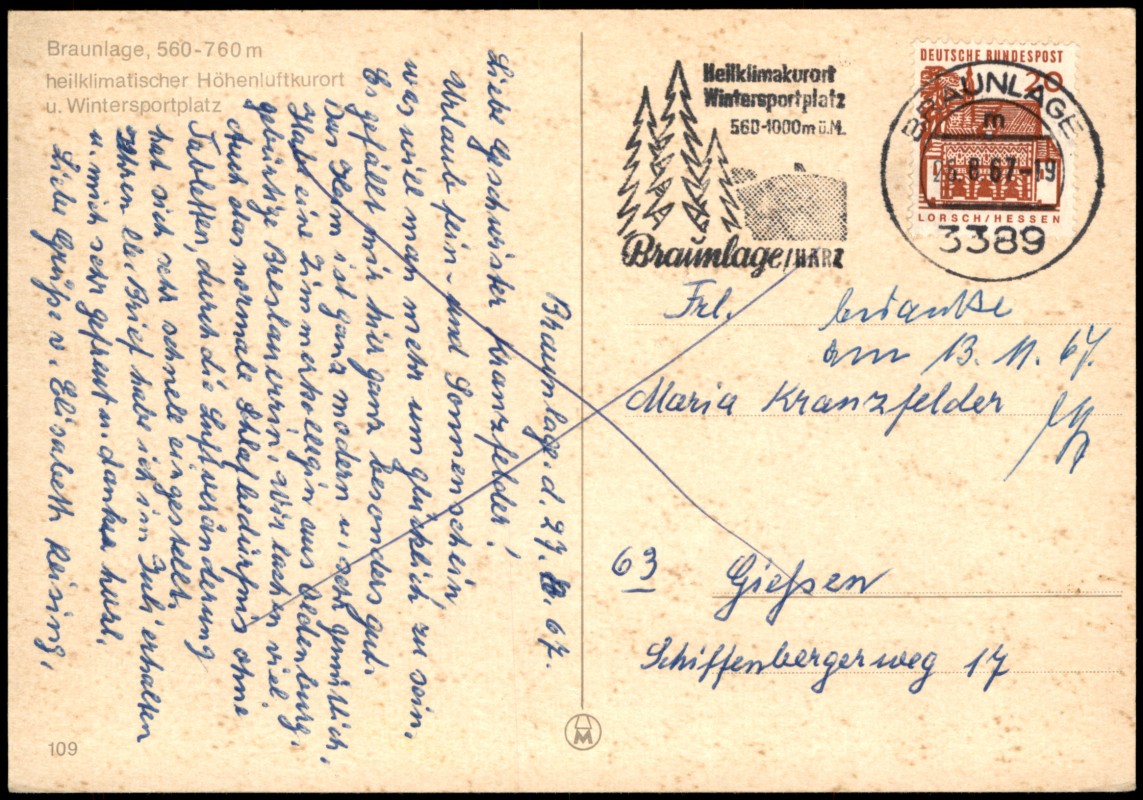 Braunlage, 560-760 m
heilklimatischer Höhenluftkurort
u. Wintersportplatz
Braunlage. d. 29. 8. 67.
Liebe Geschwister Kranzfelder!
Urlaub fein - und Sonnenschein
was will man mehr um glücklich zu sein.
Es gefällt mir hier ganz besonders gut.
Das Heim ist ganz modern u. sehr gemütlich,
Habe eine Zimmerkollegin aus Oldenburg,
gebürtige Breslauerin. Wir lachen viel.
Auch das normale Schlafbedürfnis ohne
Tabletten, durch die Luftveränderung
hat sich sehr schnell eingestellt.
Ihren lb. Brief habe ich im Juli erhalten
u. mich sehr gefreut u. danke herzl.
Liebe Grüße v. Elisabeth Reising,
109
Heilklimakurort
Wintersportplatz
560-1000m ü.M.
Braunlage/HARZ
DEUTSCHE BUNDESPOST
20
LORSCH/HESSEN
BRAUNLAGE
m
8.67-19
3389
Frl.
bedankt
am 13. 11. 67.
Maria Kranzfelder
63 Gießen
Schiffenbergerweg 17